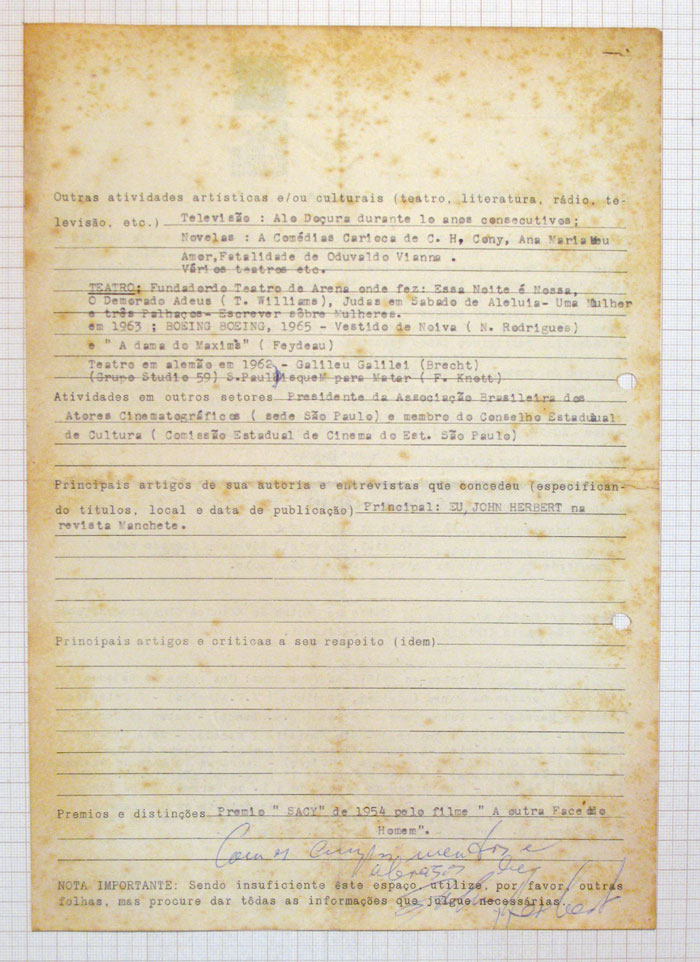 Outras atividades artísticas e/ou culturais (teatro, literatura, rádio, te-
levisão, etc.) Televisão : Alo Doçura durante 10 anos consecutivos;
Novelas : A Comédias Carioca de C. H, Cony, Ana Maria Meu
Amor,Fatalidade de Oduvaldo Vianna .
Vários teatros etc.
TEATRO: Fundadordo Teatro de Arena onde fez: Essa Noite é Nossa,
O Demorado Adeus ( T. Williams), Judas em Sabado de Aleluia- Uma Mulher
e três Palhaços- Escrever sôbre Mulheres.
em 1963 ; BOEING BOEING, 1965 - Vestido de Noiva ( N. Rodrigues)
e " A dama do Maxims" ( Feydeau)
Teatro em alemão em 1962 - Galileu Galilei (Brecht)
(Grupo Studio 59) S.Paulo) DisqueM para Matar ( F. Knott)
Atividades em outros setores Presidente da Associação Brasileira dos
Atores Cinematográficos ( sede São Paulo) e membro do Conselho Estadual
de Cultura ( Comissão Estadual de Cinema do Est. São Paulo)
Principais artigos de sua autoria e entrevistas que concedeu (especifican-
do títulos, local e data de publicação) Principal: EU, JOHN HERBERT na
revista Manchete.
Principais artigos e críticas a seu respeito (idem)
Premios e distinções Premio " SACY" de 1954 pelo filme " A outra Face do
Homem".
Com os cumprimentos e
abraços de
Herbert
NOTA IMPORTANTE: Sendo insuficiente êste espaço, utilize, por favor, outras
folhas, mas procure dar tôdas as informações que julgue necessárias.